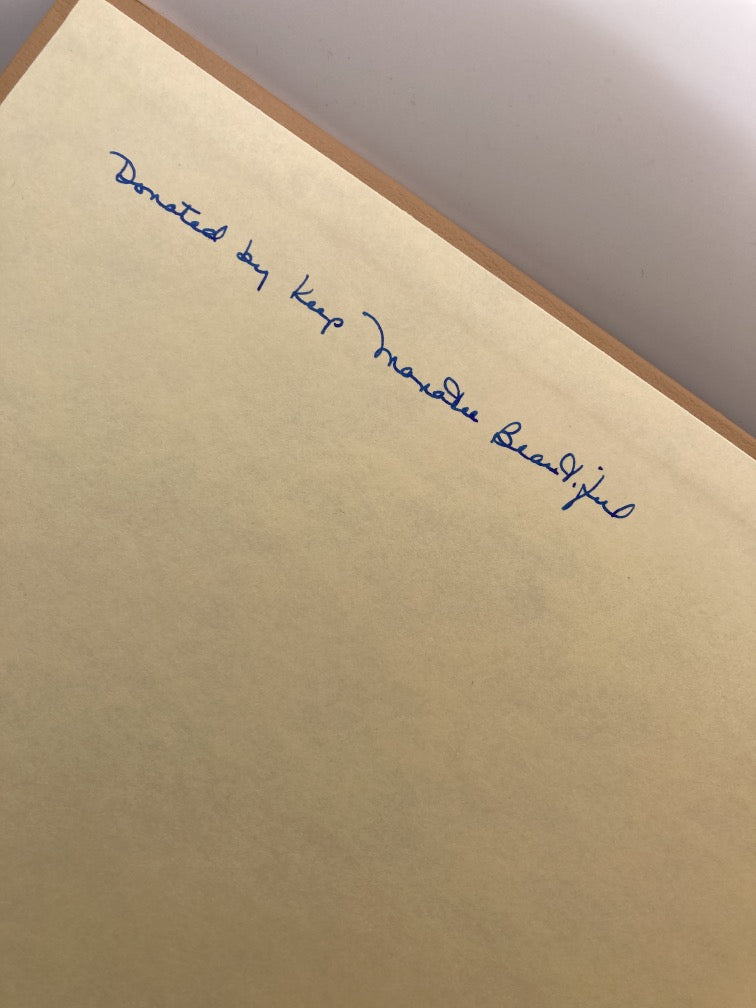 Donated by Keep Manatee Beautiful